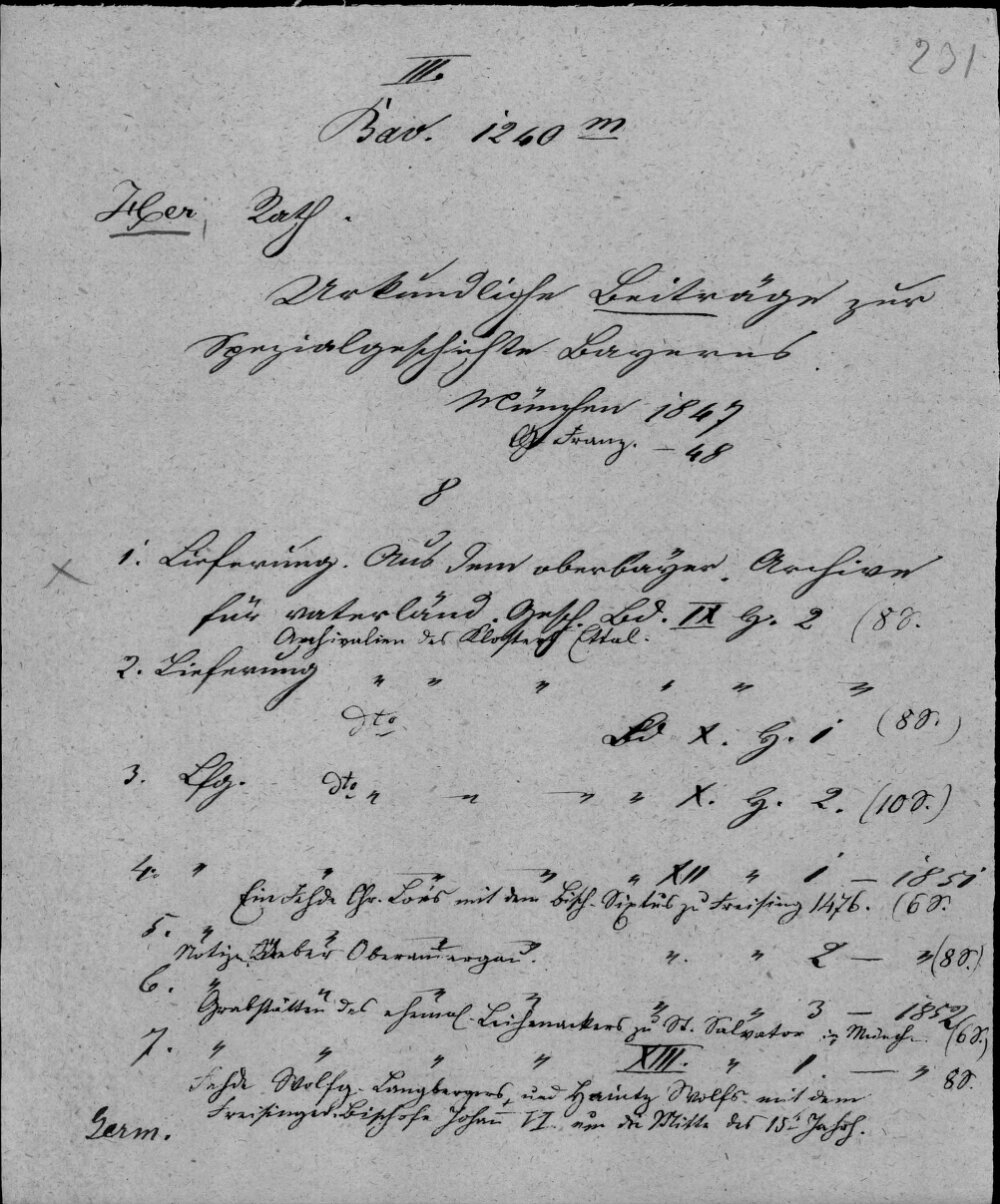 231
III.
Bav. 1240 m
Her, Rath.
Urkundliche Beiträge zur
Spezialgeschichte Bayerns.
München 1847
G. Franz. — 48
8
1. Lieferung. Aus dem oberbayer. Archive
für vaterländ. Gesch. Bd. IX H. 2 (8 S.
Archivalien des Klosters Ettal.
2. Lieferung " " " " " "
dto Bd X. H. 1 (8 S.)
3. Lfg. dto " " " " X. H. 2. (10 S.)
4. " " " " " XII " 1 — 1851
Ein Fehde Chr. Lörs mit dem Bisch. Sixtus zu Freising 1476. (6 S.
5. " " " " " " 2 — " (8 S.)
Notizen Ueber Oberammergau.
6. " " " " " " 3 — 1852
Grabstätten des ehemal. Leichenackers zu St. Salvator in Münch. (6 S.)
7. " " " " XIII. " 1. — " 8 S.
Fehde Wolfg. Langbergers, und Haintz Wolfs mit dem
Freisinger Bischofe Johañ VI. um die Mitte des 15n Jahrh.
Germ.